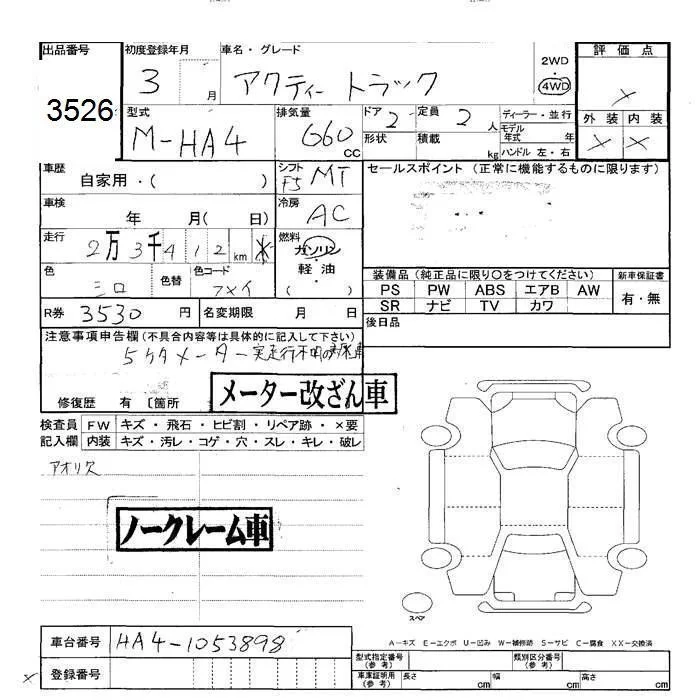 出品番号 初度登録年月 車名・グレード 2WD・4WD 評価点
3526 3 月 アクティー トラック ×
型式 排気量 ドア 定員 ディーラー・並行 外装 内装
M-HA4 660 CC 2 2 人 モデル年式 年 × ×
形状 積載 kg ハンドル 左・右
車歴 自家用・( ) シフト F5 MT セールスポイント (正常に機能するものに限ります)
車検 年 月( 日) 冷房 AC
走行 2万3千412km 燃料 ガソリン・軽油・( )
色 シロ 色替 色コード フメイ 装備品 (純正品に限り○をつけてください) 新車保証書
PS PW ABS エアB AW 有・無
SR ナビ TV カワ
R券 3530 円 名変期限 月 日 後日品
注意事項申告欄(不具合内容等は具体的に記入して下さい)
5ケタメーター 実走行不明
メーター改ざん車
修復歴 有 〔箇所
検査員記入欄 FW キズ・飛石・ヒビ割・リペア跡・×要
内装 キズ・汚レ・コゲ・穴・スレ・キレ・破レ
アオリ欠
ノークレーム車
スペア
A-キズ E-エクボ U-凹み W-補修跡 S-サビ C-腐食 XX-交換済
車台番号 HA4-1053898 型式指定番号(参考) 類別区分番号(参考)
× 登録番号 車庫証明用(参考) 長さ cm 幅 cm 高さ cm